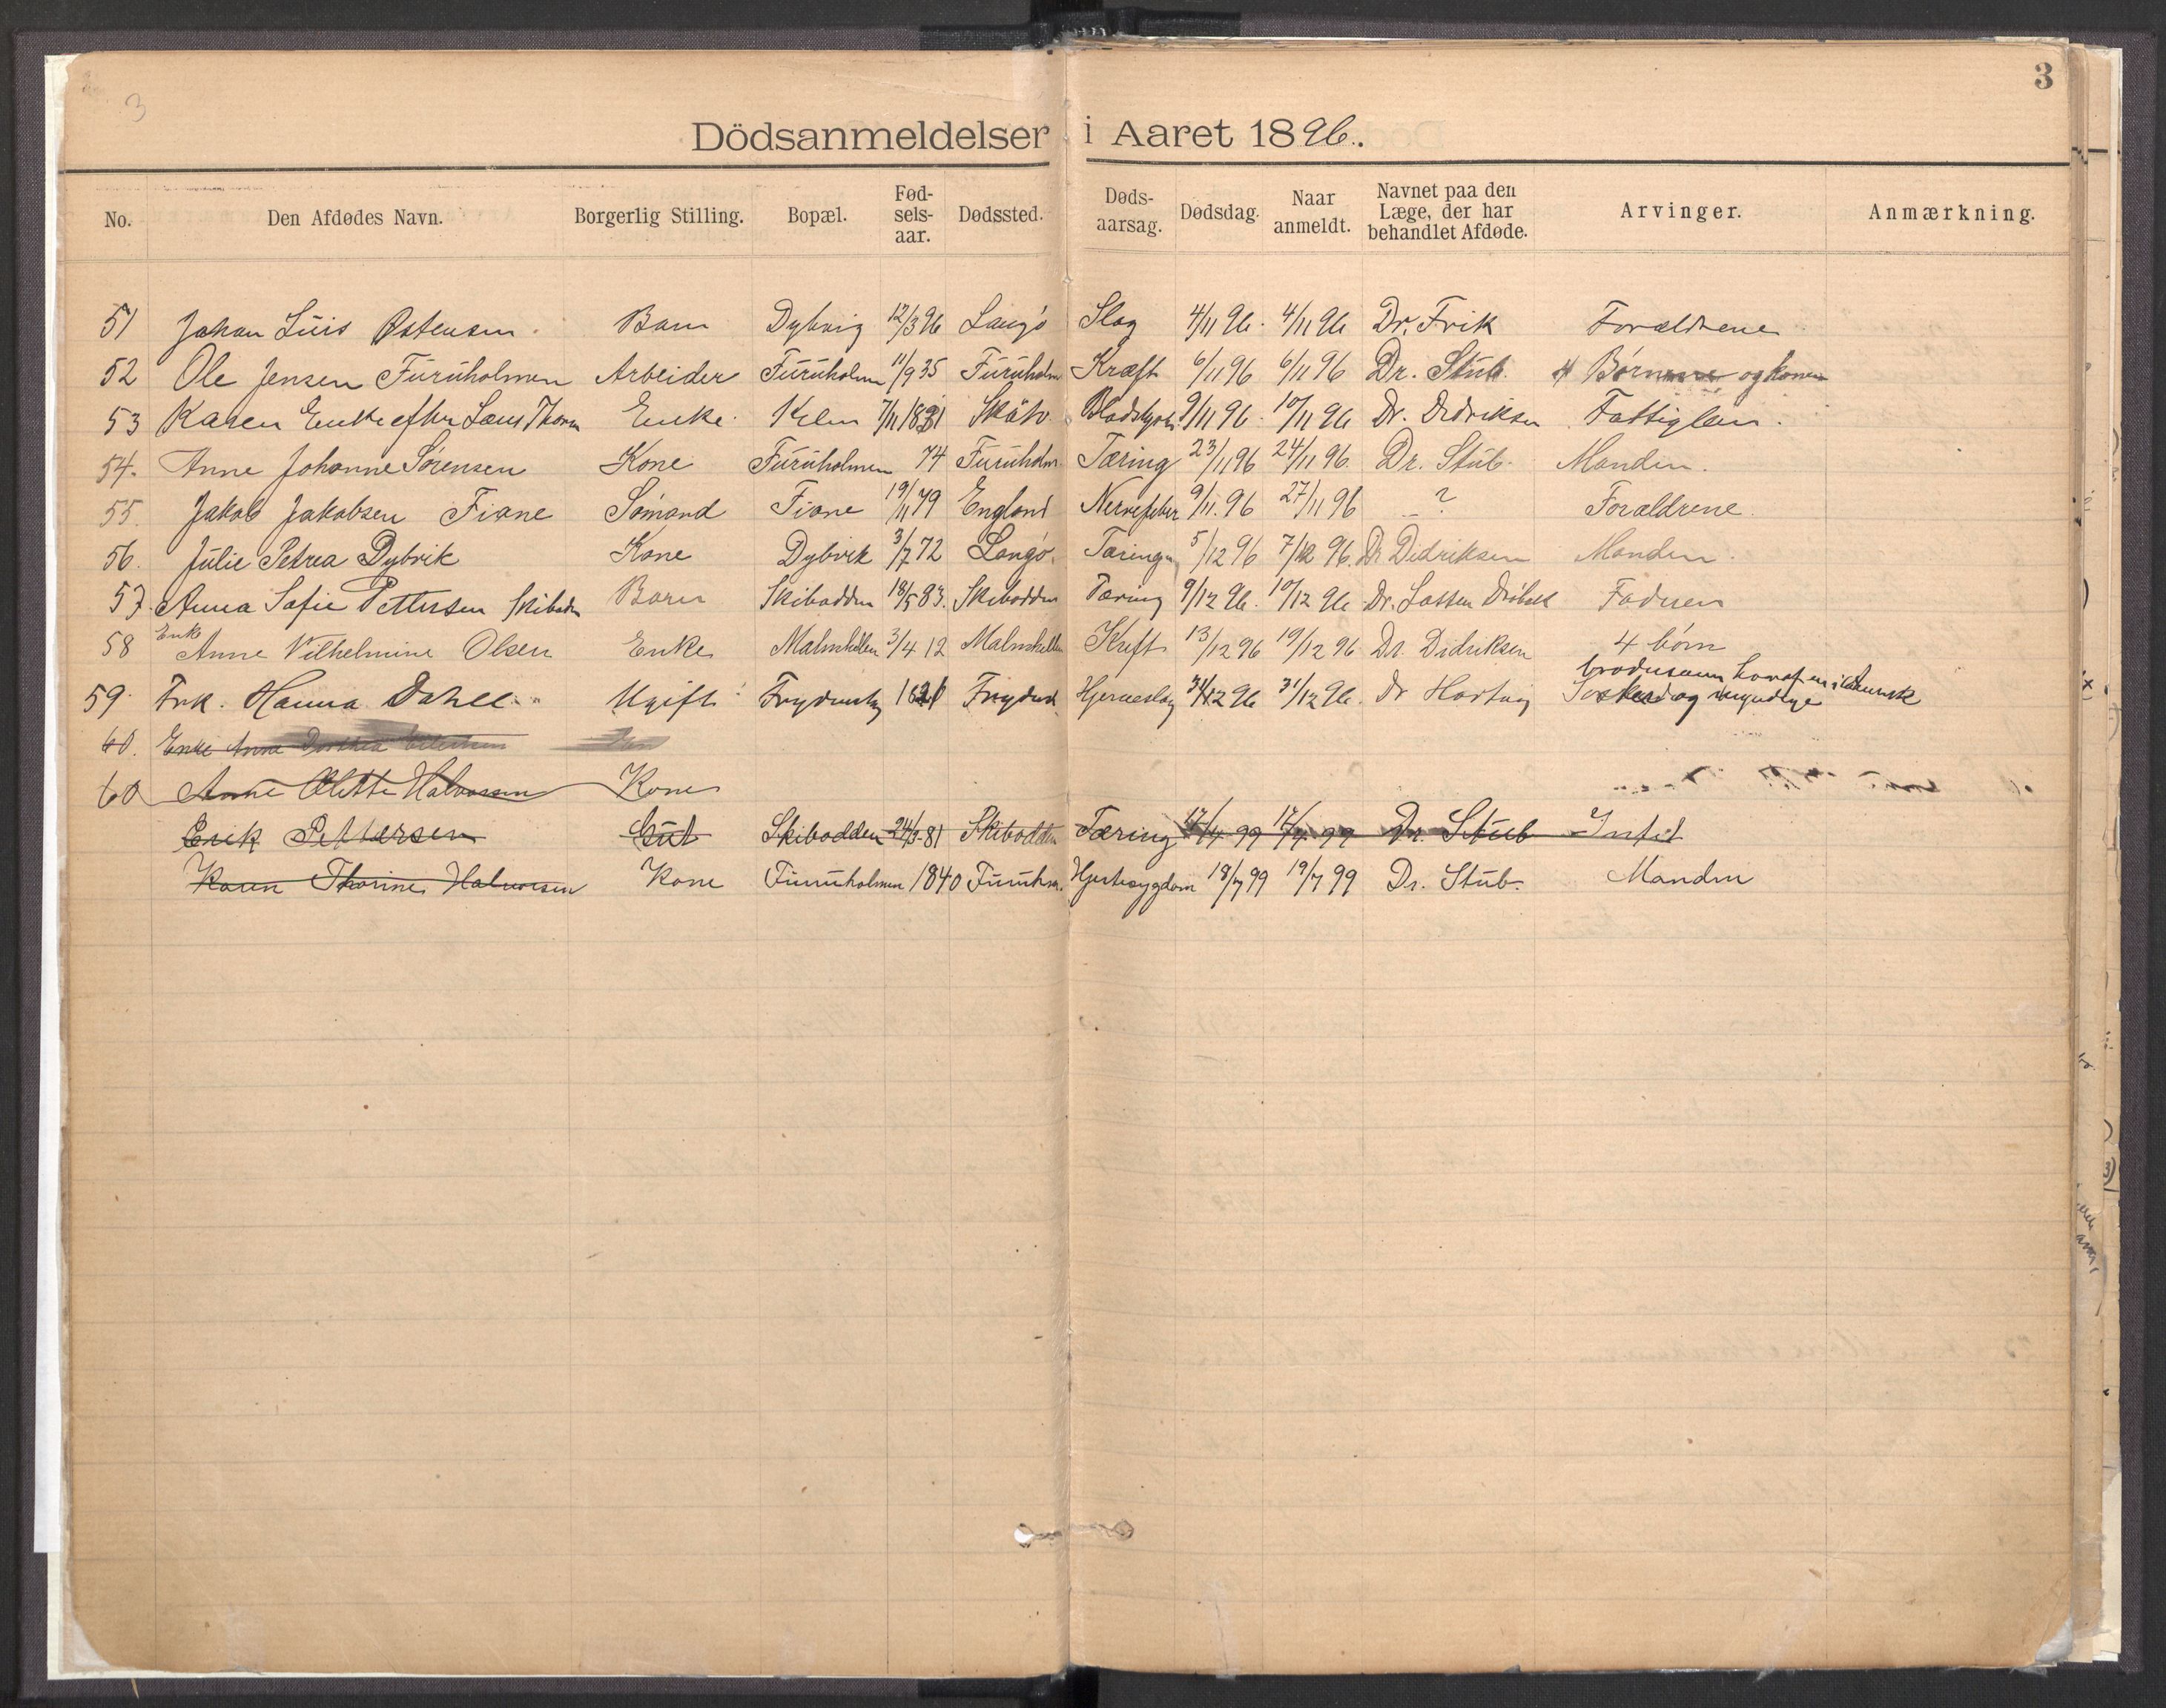 3
3
Dödsanmeldelser i Aaret 1896.
No. Den Afdødes Navn. Borgerlig Stilling. Bopæl. Fødselsaar. Dødssted. Dødsaarsag. Dødsdag. Naar anmeldt. Navnet paa den Læge, der har behandlet Afdøde. Arvinger. Anmærkning.
51 Johan Luis Østensen. Barn Dybvig 12/3 96 Langö Slag 4/11 96. 4/11 96 Dr. Frik Forældrene
52 Ole Jensen Furuholmen Arbeider Furuholm 11/9 35 Furuholm Kræft 6/11 96 6/11 96 Dr. Stub. 4 Børn og konen
53 Karen Enke efter Lars Thorsn Enke. 7/11 1831 Skåtø 9/11 96. 10/11 96 Dr. Didriksen Fattiglem.
54. Anne Johanne Sørensen Kone Furuholmen 74 Furuholm Tæring 23/11 96 24/11 96. Dr. Stub. Manden.
55. Jakob Jakobsen Fiane Sömand Fiane 19/11 79 England Nervefeber 9/11. 96 27/11 96 ? Foraldrene.
56. Julie Petrea Dybvik Kone Dybvik 3/7 72 Langö. Tæring 5/12 96 7/12 96. Dr Didriksen Manden.
57. Anna Sofie Pettersen Skibodn Barn Skibodden 18/5 83. Skibodden Tæring 9/12 96. 10/12 96 Dr. Lassen Faderen
58 Enke Anne Vilhelmine Olsen Enke Malmhellen 3/4 12 Malmhellen Kreft 13/12 96 19/12 96 Dr. Didriksen 4 börn
59. Frk. Hanna Dahll. Ugift 18 Hjerneslag 31/12 96 31/12 96. Dr Hartvig
60. Enke Anne Dorthea
60 Anne Olette Halvorsen Kone
Erik Pettersen Gut Skibodden 24/9-81 Skibodden Tæring 17/4 99 17/4 99 Dr. Stub Intet
Karen Thorine Halvorsen Kone Furuholmen 1840 Furuhm. Hjertesygdom 18/7 99 19/7 99 Dr. Stub. Manden